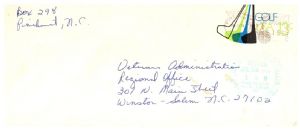 Box 298
Pinehurst, N.C.
GOLF
Veterans Administration
Regional Office
301 N. Main Street
Winston-Salem N.C. 27102